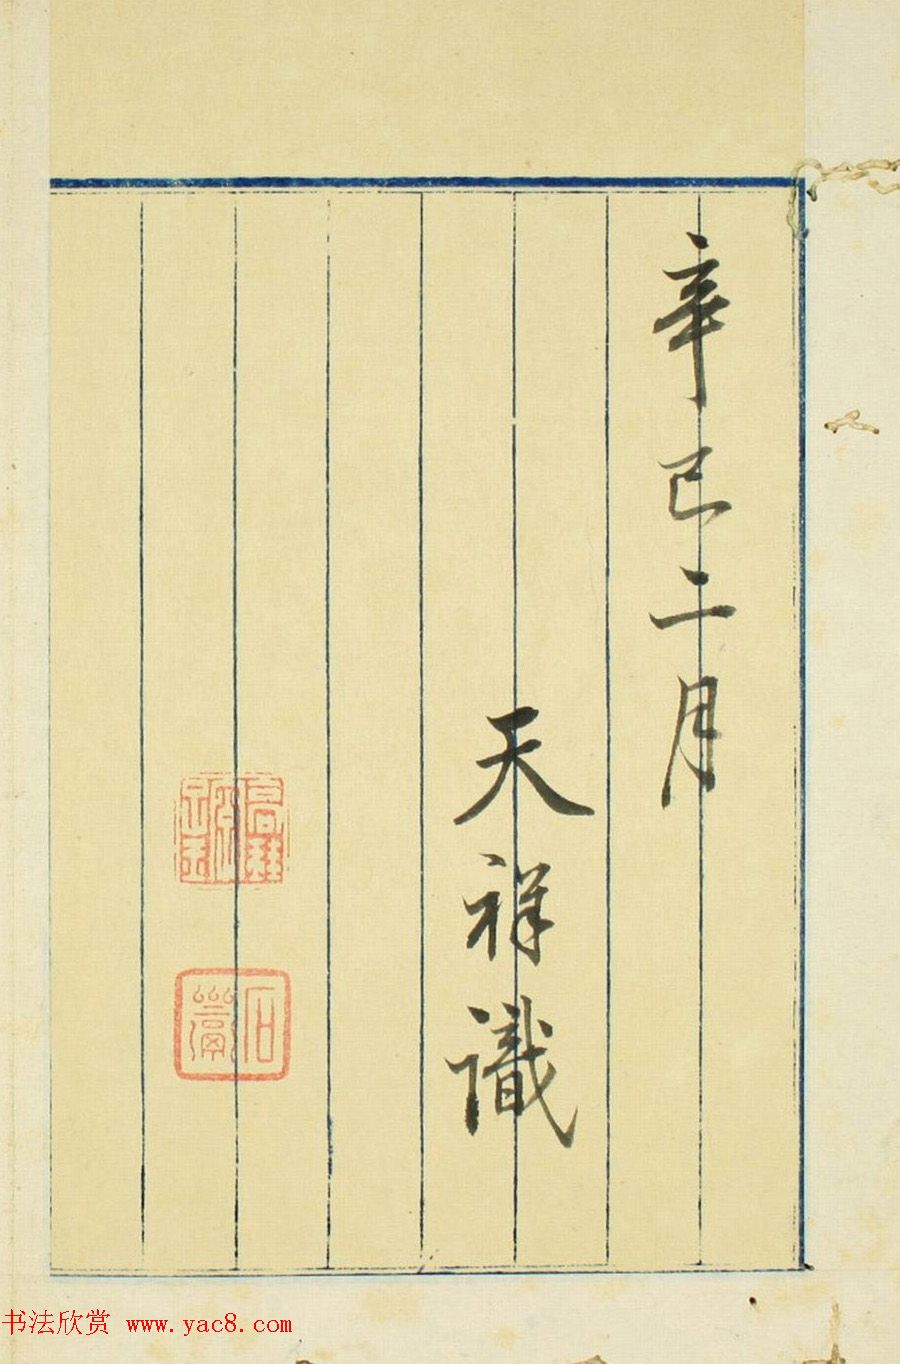 辛巳二月
天祥識
书法欣赏 www.yac8.com